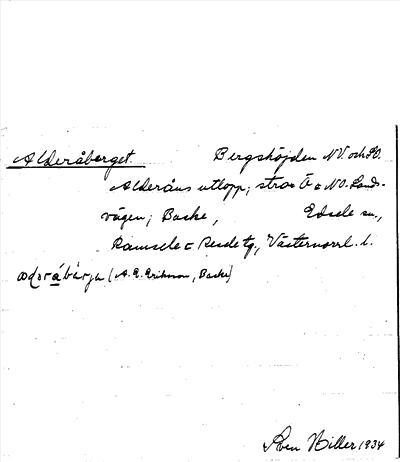 Alderåberget. Bergshöjden NV. och SO.
Alderåns utlopp; strax Ö o NO. Lands-
vägen; Backe, Edsele sn.,
Ramsele o Resele tg., Västernorrl. l.
(A. E. Erikson, Backe)
Sven Hiller 1934